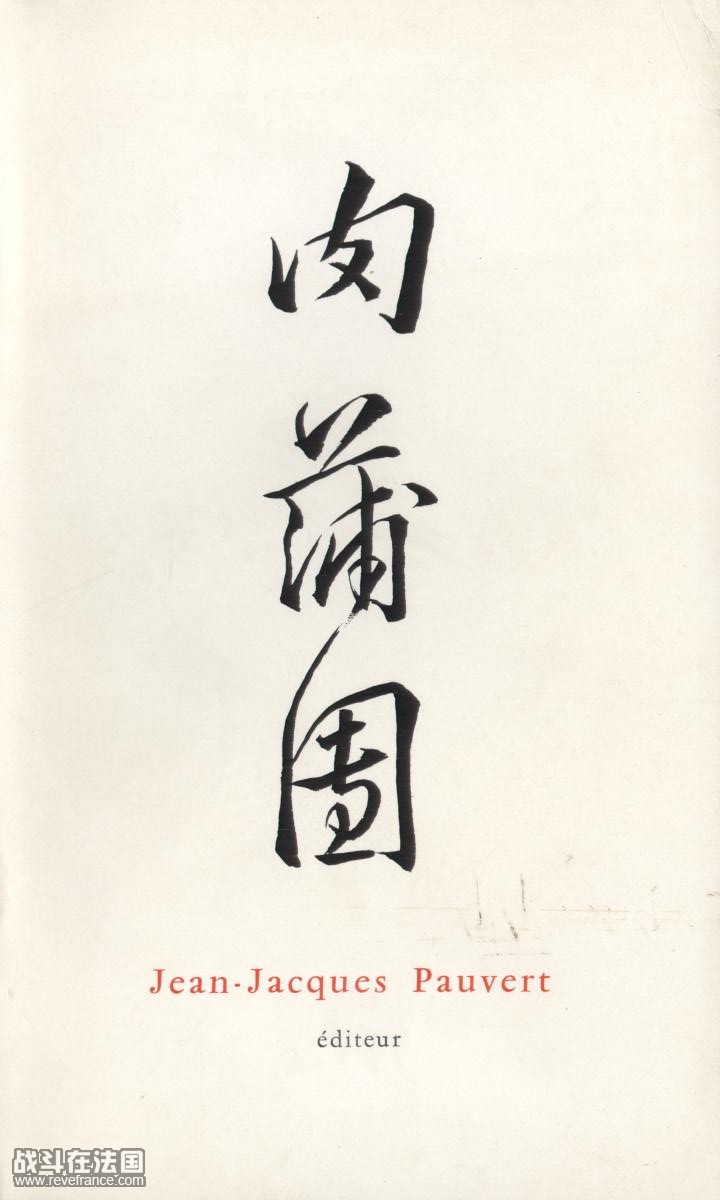 肉
蒲
團
Jean-Jacques Pauvert
éditeur
战斗在法国
www.revefrance.com